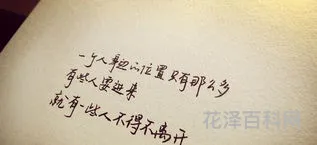 一个人身边的位置只有那么多
有些人要进来
就有一些人不得不离开
花泽百科网